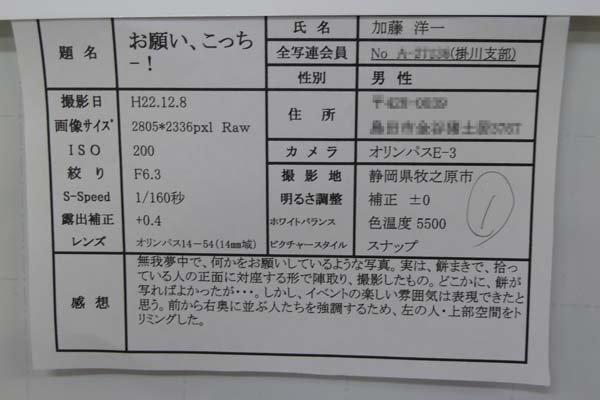 題名 お願い、こっち
ー!
氏名 加藤 洋一
全写連会員 No (掛川支部)
性別 男 性
撮影日 H22.12.8
住所
画像サイズ 2805*2336pxl Raw
ISO 200
カメラ オリンパスE-3
絞り F6.3
撮影地 静岡県牧之原市
S-Speed 1/160秒
明るさ調整 補正 ±0
露出補正 +0.4
ホワイトバランス 色温度 5500
レンズ オリンパス14-54(14㎜域)
ピクチャースタイル スナップ
1
感想
無我夢中で、何かをお願いしているような写真。実は、餅まきで、拾っ
ている人の正面に対座する形で陣取り、撮影したもの。どこかに、餅が
写ればよかったが・・・。しかし、イベントの楽しい雰囲気は表現できたと
思う。前から右奥に並ぶ人たちを強調するため、左の人・上部空間をト
リミングした。